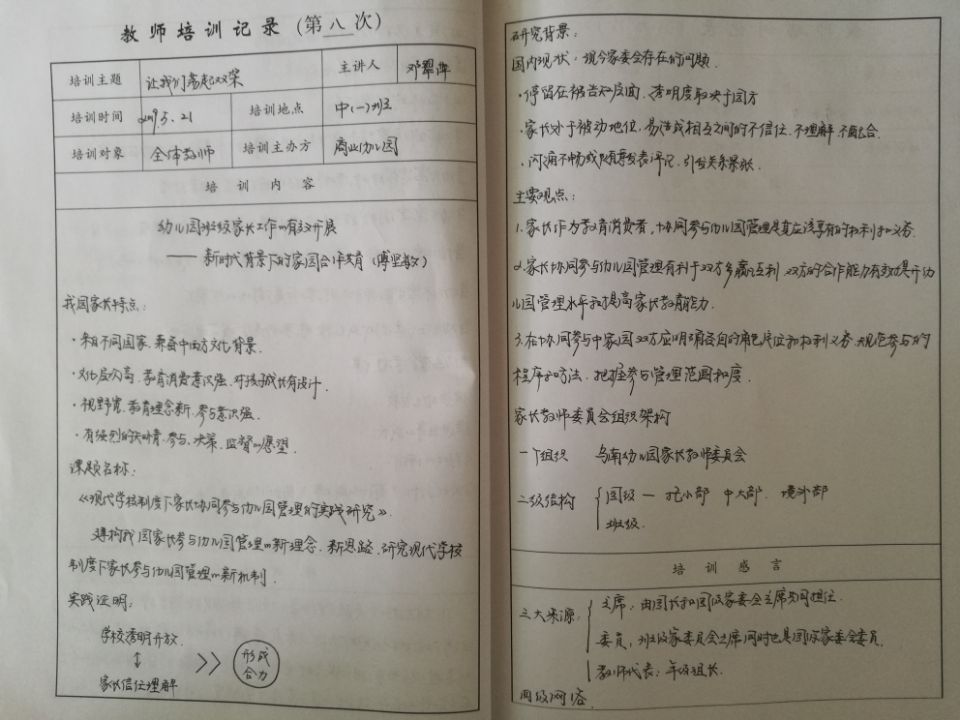 教师培训记录（第八次）
培训主题 让我们 主讲人 邓翠萍
培训时间 2019.5.21 培训地点 中(一)班
培训对象 全体教师 培训主办方 商业幼儿园
培训内容
幼儿园班级家长工作的有效开展
—— 新时代背景下的家园合作共育
我国家长特点：
·来自不同国家、秉承中西方文化背景.
·文化层次高、教育消费意识强、对孩子成长有设计.
·视野宽、教育理念新、参与意识强.
·有强烈的知情、参与、决策、监督的愿望.
课题名称：
《现代学校制度下家长协同参与幼儿园管理的实践研究》.
建构我园家长参与幼儿园管理的新理念、新思路、研究现代学校
制度下家长参与幼儿园管理的新机制.
实践证明：
学校透明开放
↕ >> 形成合力
家长信任理解
研究背景：
国内现状：现今家委会存在的问题.
·停留在被告知层面、透明度取决于园方
·家长处于被动地位，易造成相互之间的不信任、不理解、不配合.
·沟通不畅或随意发表评论、引发关系紧张.
主要观点：
1.家长作为教育消费者，协同参与幼儿园管理是其应该享有的权利和义务.
2.家长协同参与幼儿园管理有利于双方多赢互利 双方的合作能力有效提升幼
儿园管理水平和提高家长教育能力.
3.在协同参与中家园双方应明确各自的角色定位和权利义务、规范参与的
程序和方法、把握参与管理范围和度.
家长教师委员会组织架构
一个组织 乌南幼儿园家长教师委员会
二级结构 园级 — 托小部 中大部 境外部
班级.
培训感言
三大来源：主席：由园长和园级家委会主席共同担任.
委员：班级家委会主席同时也是园级家委会委员.
教师代表：年级组长.
四级网络